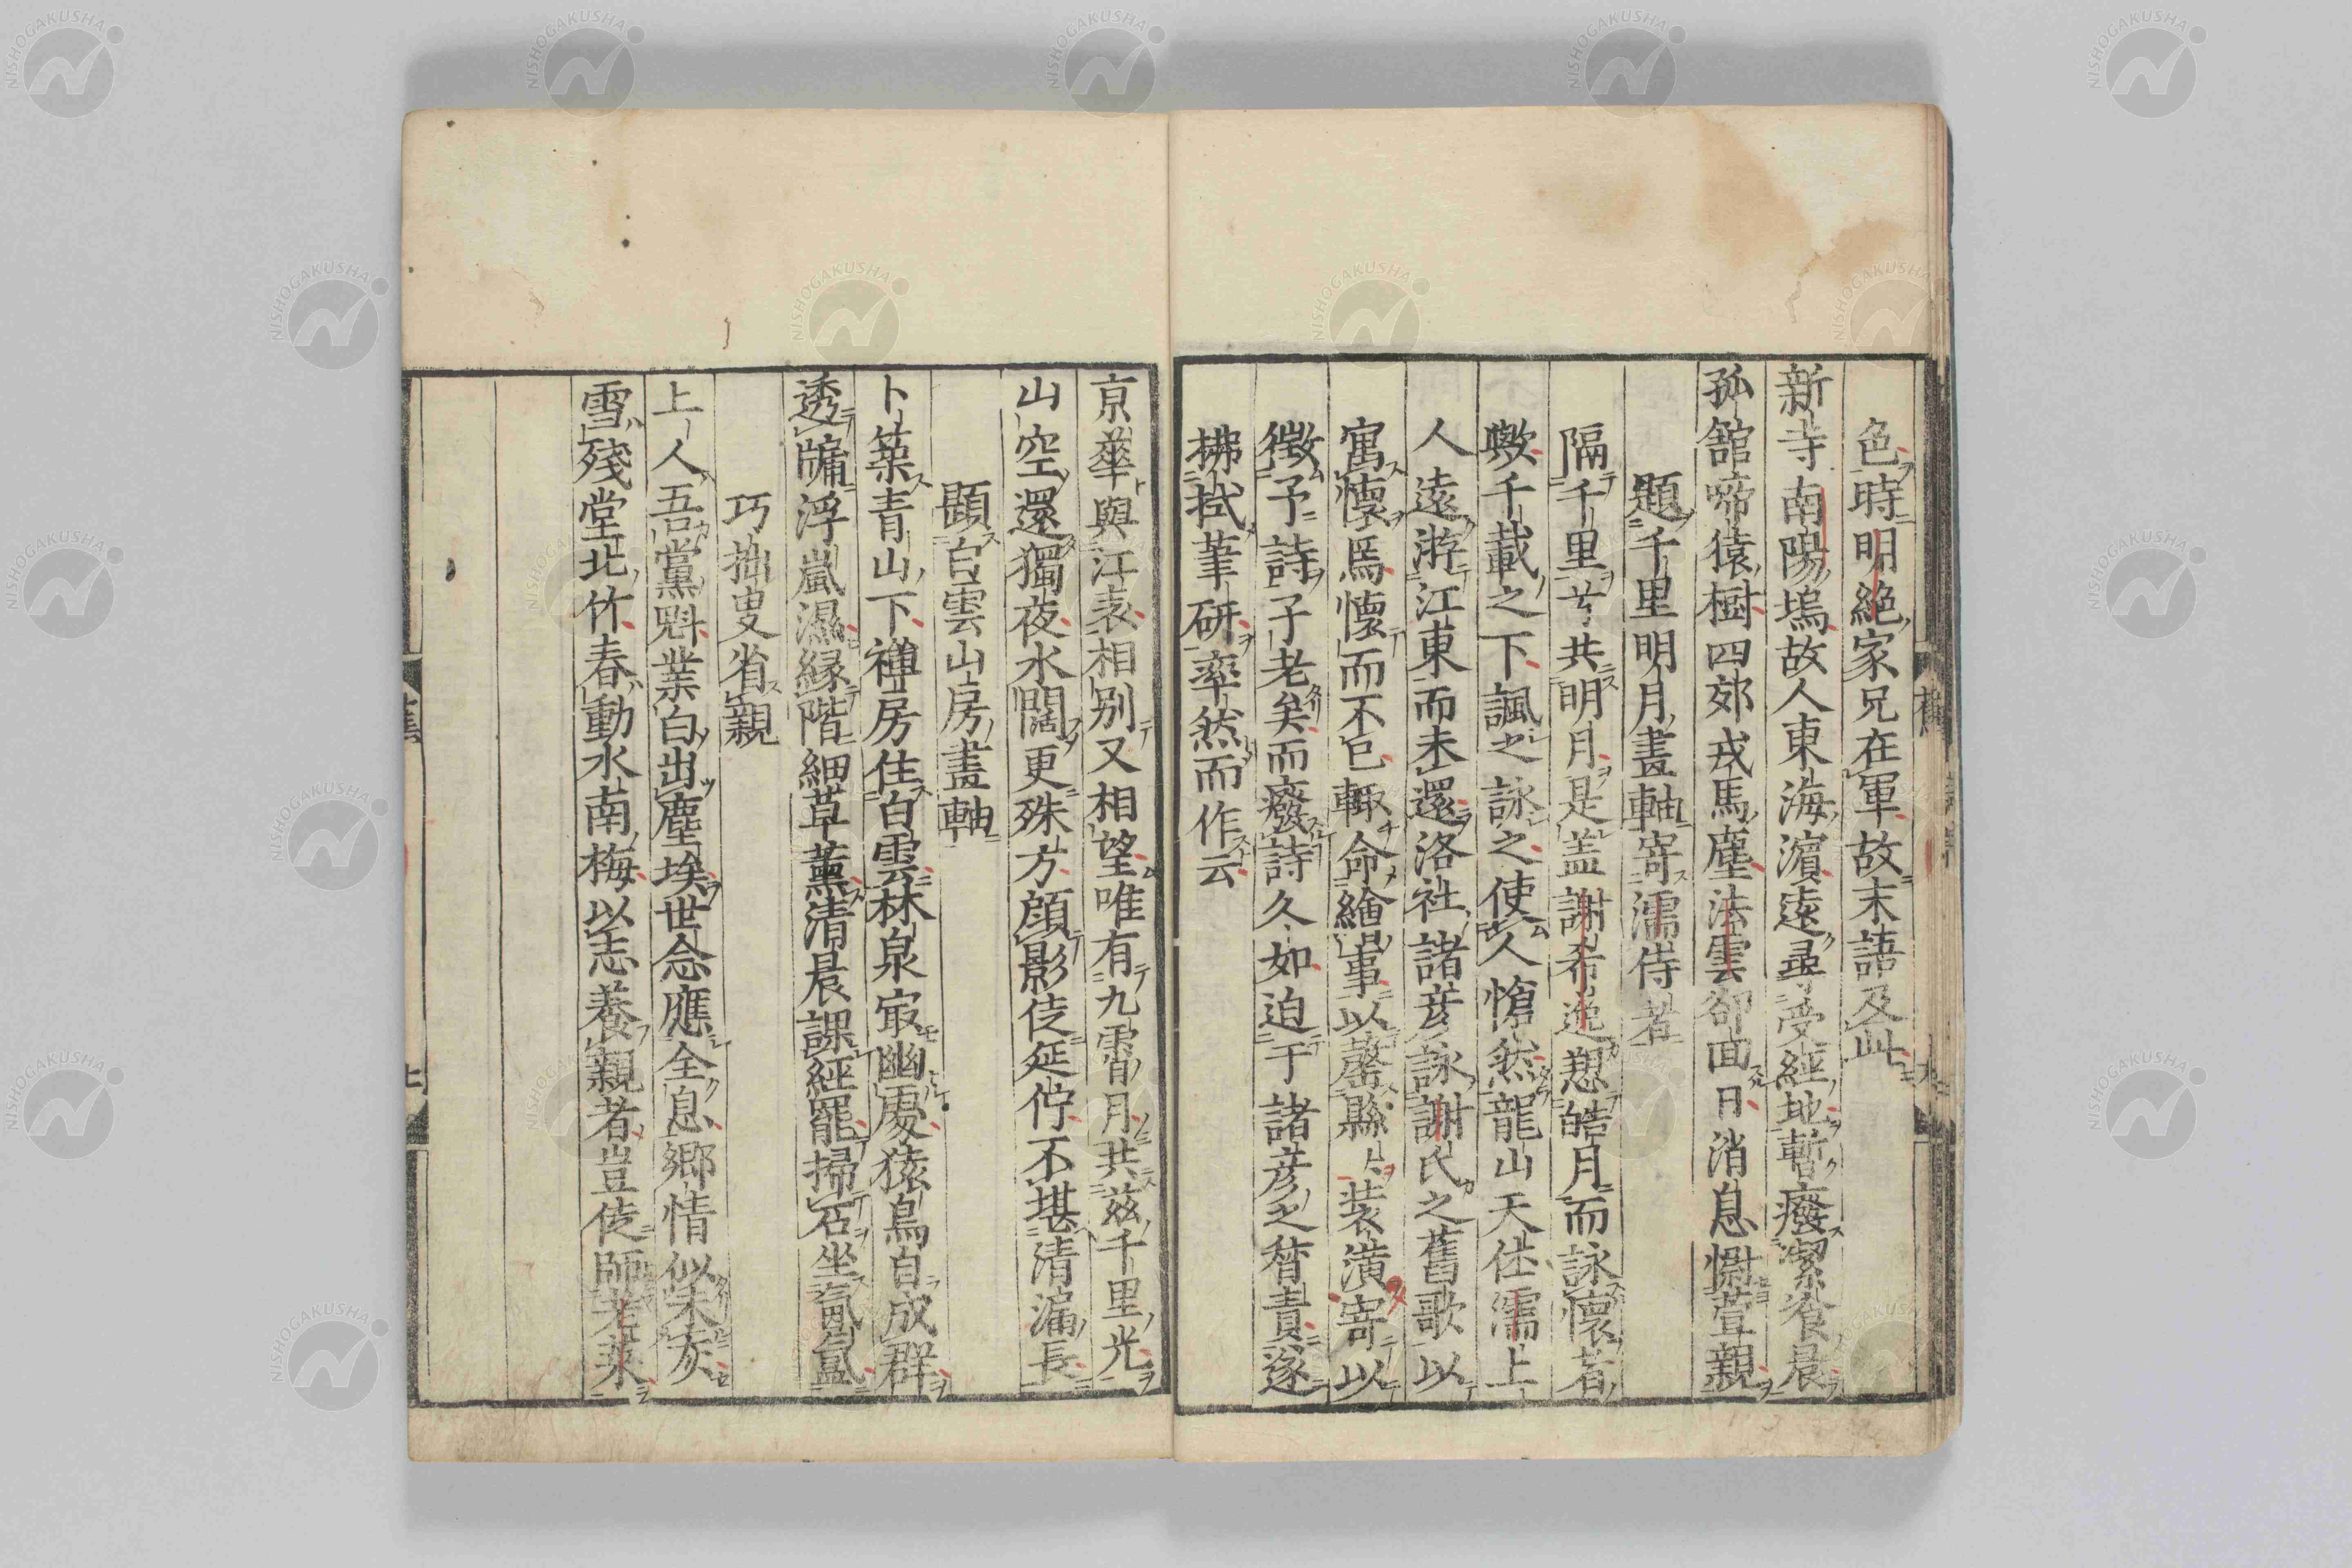 色時明絶家兄在軍故末語及此
新寺南陽塢故人東海濵遠尋受經地暫廢潔飡晨
孤舘啼猿樹四郊戎馬塵法雲卻面日消息慰萱親
題千里明月畫軸寄濡侍者
隔千里兮共明月是盖謝希逸對皓月而詠懷者
歟千載之下諷之詠之使人愴然龍山天仕濡上
人遠游江東而未還洛社諸彦詠謝氏之舊歌以
寓懷焉懷而不已輙命繪事以罄縣上装潢寄以
徴予詩予老矣而癈詩久如迫于諸彦之督責遂
拂拭筆研率然而作云
京華與江表相別又相望唯有九霄月共茲千里光
山空還獨夜水闊更殊方顔影徒延佇不堪清漏長
題白雲山房畫軸
卜築青山下禅房住白雲林泉㝡幽處猿鳥自成群
透牖浮嵐濕縁階細草薫清晨課經罷掃石坐氤氳
巧拙叟省親
上人吾黨魁業白出塵埃世念應全息郷情似未灰
雪殘堂北竹春動水南梅以志養親者豈徒師老萊